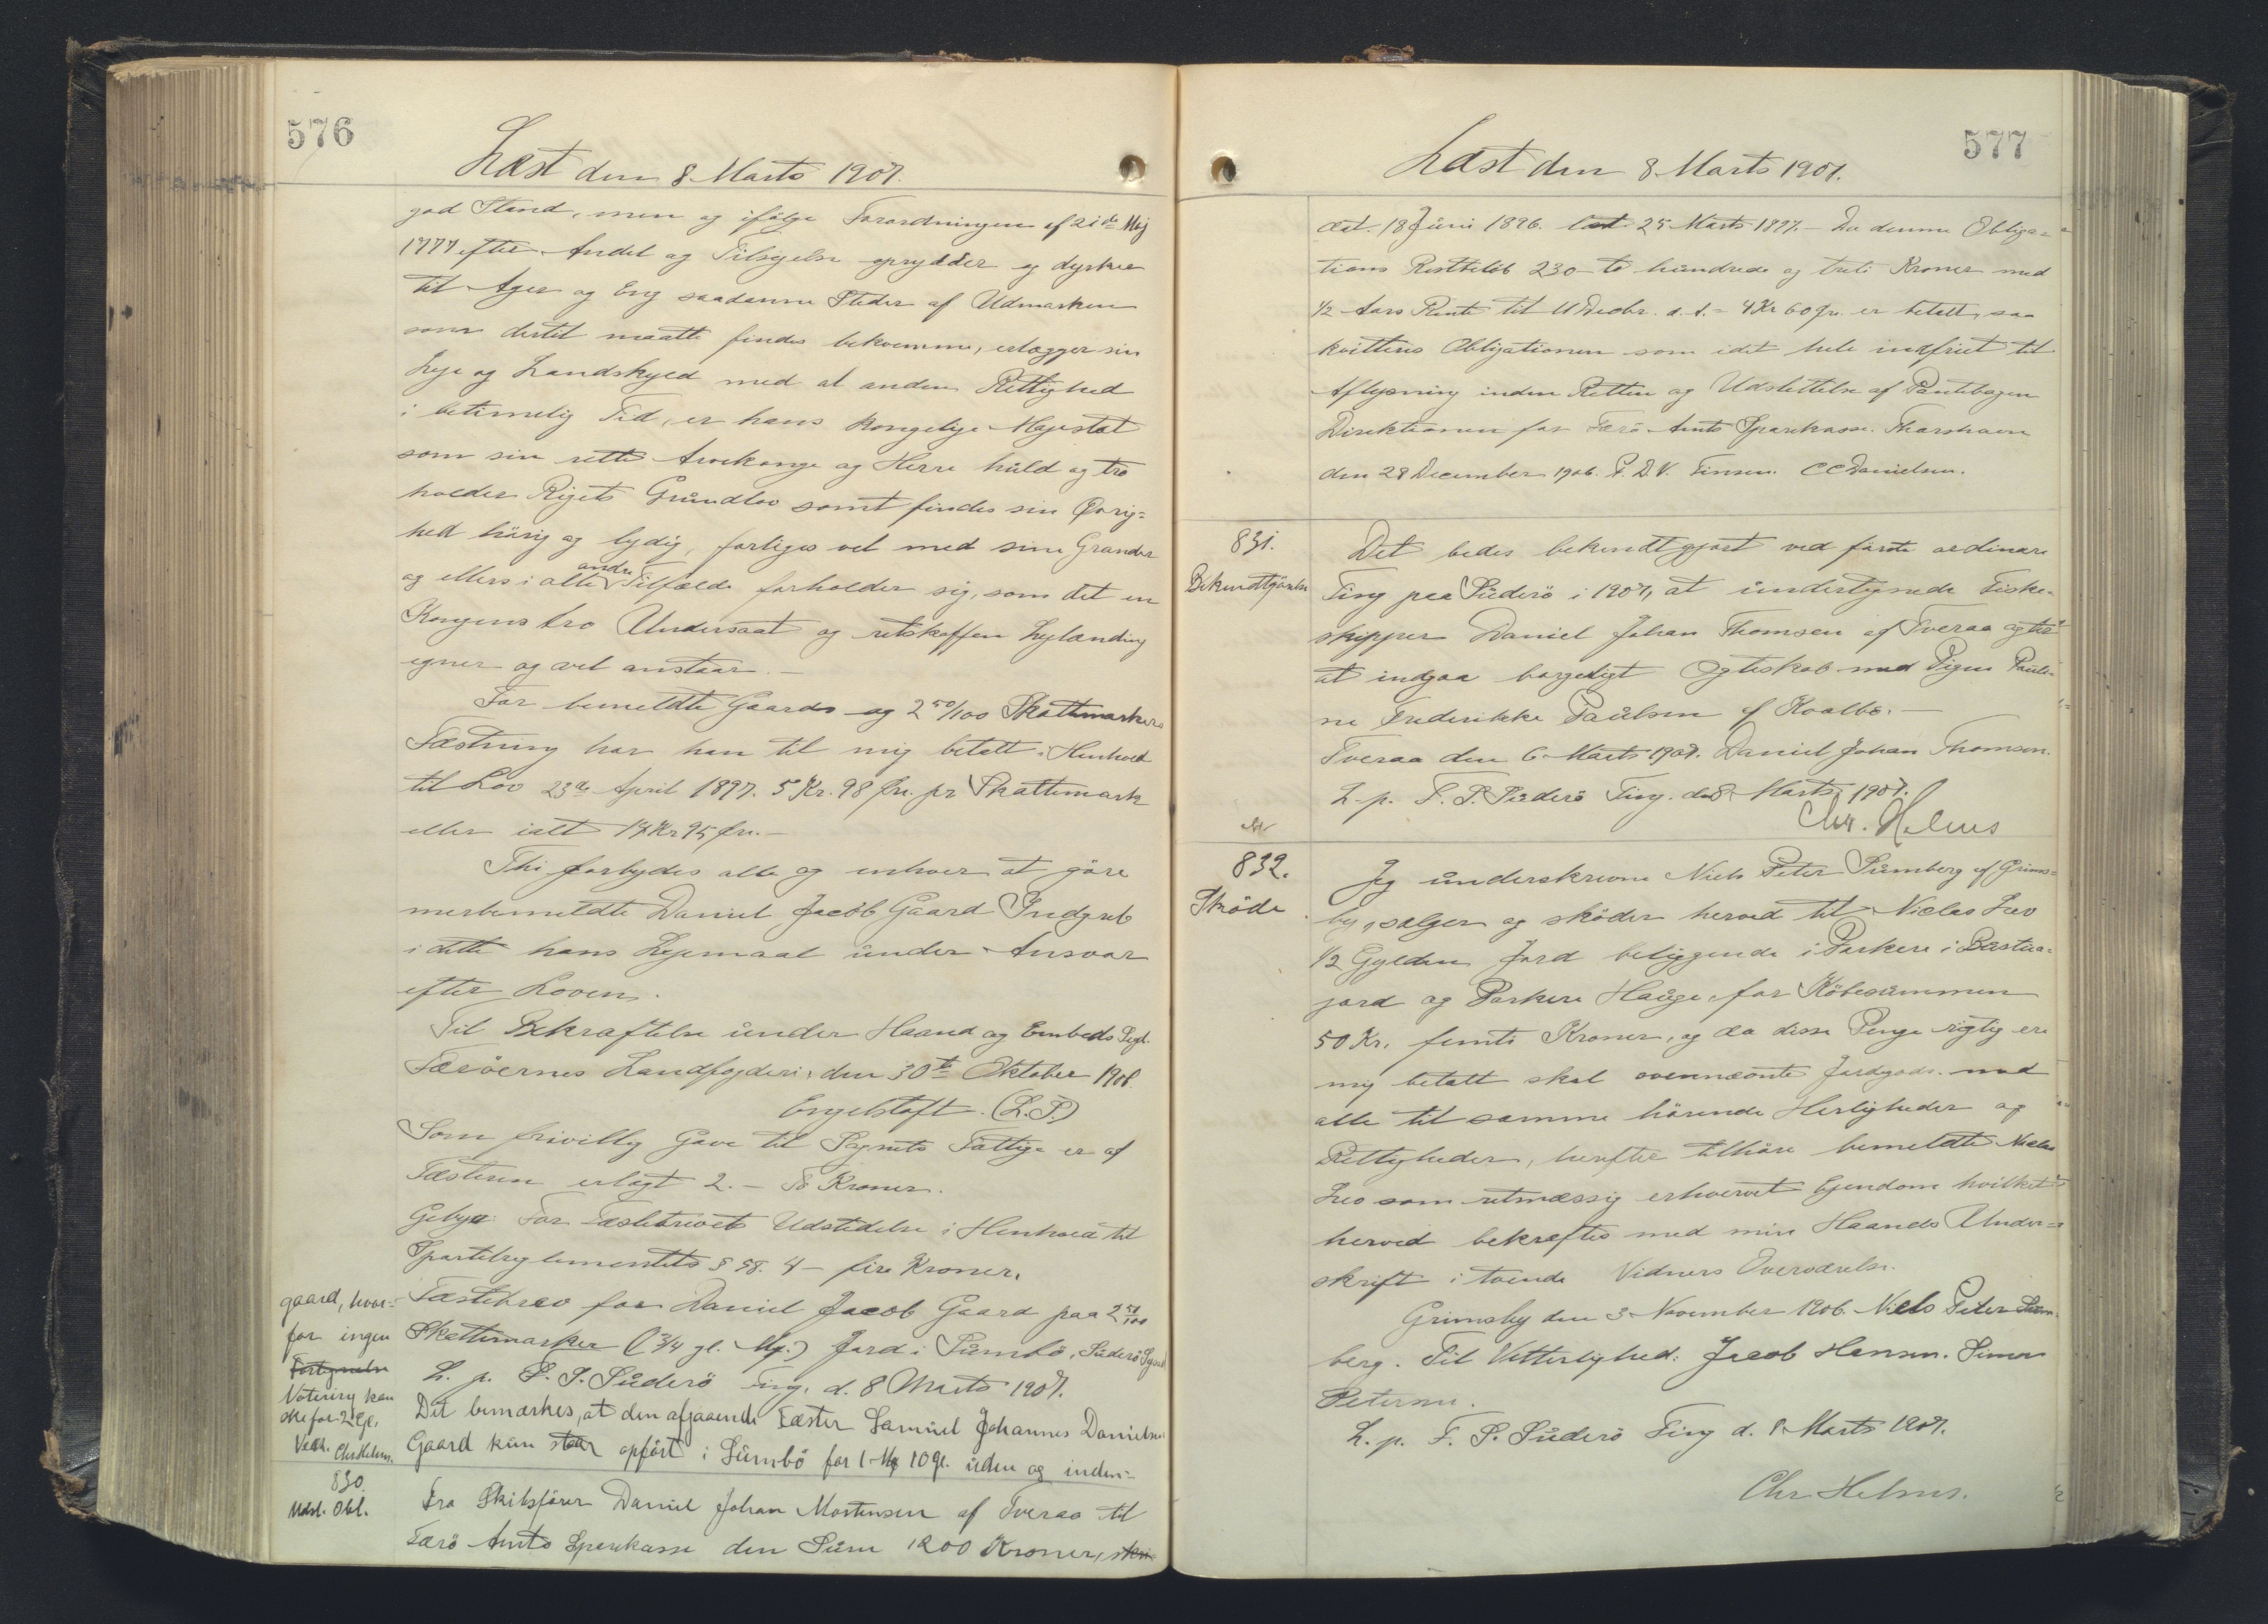 576
Læst den 8 Marts 1907.
god Stand, men og ifølge Forordningen af 21de Maj
1777 efter Andel og Tilsigelse oprydder og dyrker
til Ager og Eng saadanne Steder af Udmarken
som dertil maatte findes bekvemme, erlægger sin
Leje og Landskyld med al anden Rettighed
i betimelig Tid, er hans kongelige Majestæt
som sin rette Arvekonge og Herre huld og tro
holder Rigets Grundlov samt findes sin Øvrig=
hed hørig og lydig, forliges vel med sine Grander
og ellers i alle andre Tilfælde forholder sig, som det en
Kongens tro Undersaat og retskaffen Lejlænding
egner og vel anstaar.-
For bemeldte Gaards og 2 50/100 Skattemarkers
Fæstning har han til mig betalt i Henhold
til Lov 23de April 1897. 5 Kr. 98 Øre. pr Skattemark
eller ialt 14 Kr 95 Øre.-
Thi forbydes alle og enhver at gøre
merbemeldte Daniel Jacob Gaard Indgreb
i dette hans Lejemaal under Ansvar
efter Loven.
Til Bekræftelse under Haand og Embeds Segl.
Færøernes Landfogderi, den 30te Oktober 1906.
Engelstoft. (L.S.)
Som frivillig Gave til Sognets Fattige er af
Fæsteren erlagt 2.- To Kroner.
Gebyr: For Fæstebrevets Udstedelse i Henhold til
Sportelreglementets § 58. 4 - fire Kroner.
Fæstebrev for Daniel Jacob Gaard paa 2 50/100
Skattemarker (3/4 gl. Mk.) Jord i Sumbø, Suderø Syssel
L. p. F. S. Suderø Ting, d. 8 Marts 1907.
Det bemærkes, at den afgaaende Fæster Samuel Johannes Danielsen
Gaard kun staar opført i Sumbø for 1 Mk 10 gl. uden og inden=
gaard, hvor=
for ingen
Notering kan
ske for 2 Gl.
Chr Helms.
830.
Udsl. Obl.
Fra Skibsfører Daniel Johan Mortensen af Tveraa til
Færø Amts Sparekasse den Sum 1200 Kroner,
577
Læst den 8 Marts 1907.
dat. 18 Juni 1896. læst 25 Marts 1897.- Da denne Obliga=
tions Restbeløb 230 - to hundrede og treti Kroner med
1/2 Aars Rente til 11 Decbr. d. A. = 4 Kr 60 Øre. er betalt, saa
kvitteres Obligationen som i det hele indfriet til
Aflysning inden Retten og Udslettelse af Pantebogen
Direktionen for Færø Amts Sparekasse. Thorshavn
den 28 December 1906. P. D. V. Finsen. C C Danielsen.
831.
Bekendtgørelse
Det bedes bekendtgjort ved første ordinære
Ting paa Suderø i 1907, at undertegnede Fiske=
skipper Daniel Johan Thomsen af Tveraa agter
at indgaa borgerligt Ægteskab med Pigen Pauli=
ne Frederikke Paulsen af Kvalbø.-
Tveraa den 6 Marts 1907. Daniel Johan Thomsen.
L. p. F. S. Suderø Ting. d. 8 Marts 1907.
Chr. Helms
832.
Skøde
Jeg underskrevne Niels Peter Sumberg af Grims=
by, sælger og skøder herved til Niclas Leo
1/2 Gylden Jord beliggende i Porkere i
jord og Porkere Hauge, for Købesummen
50 Kr. femti Kroner, og da disse Penge rigtig ere
mig betalt skal ovennævnte Jordgods med
alle til samme hørende Herligheder og
Rettigheder, herefter tilhøre bemeldte Niclas
Leo som retmæssig erhvervet Ejendom hvilket
herved bekræftes med min Haands Under=
skrift i tvende Vidners Overværelse.
Grimsby den 3 November 1906. Niels Peter Sum=
berg. Til Vitterlighed: Jacob Hansen. Simon
Petersen.
L. p. F. S. Suderø Ting d. 8 Marts 1907.
Chr Helms.